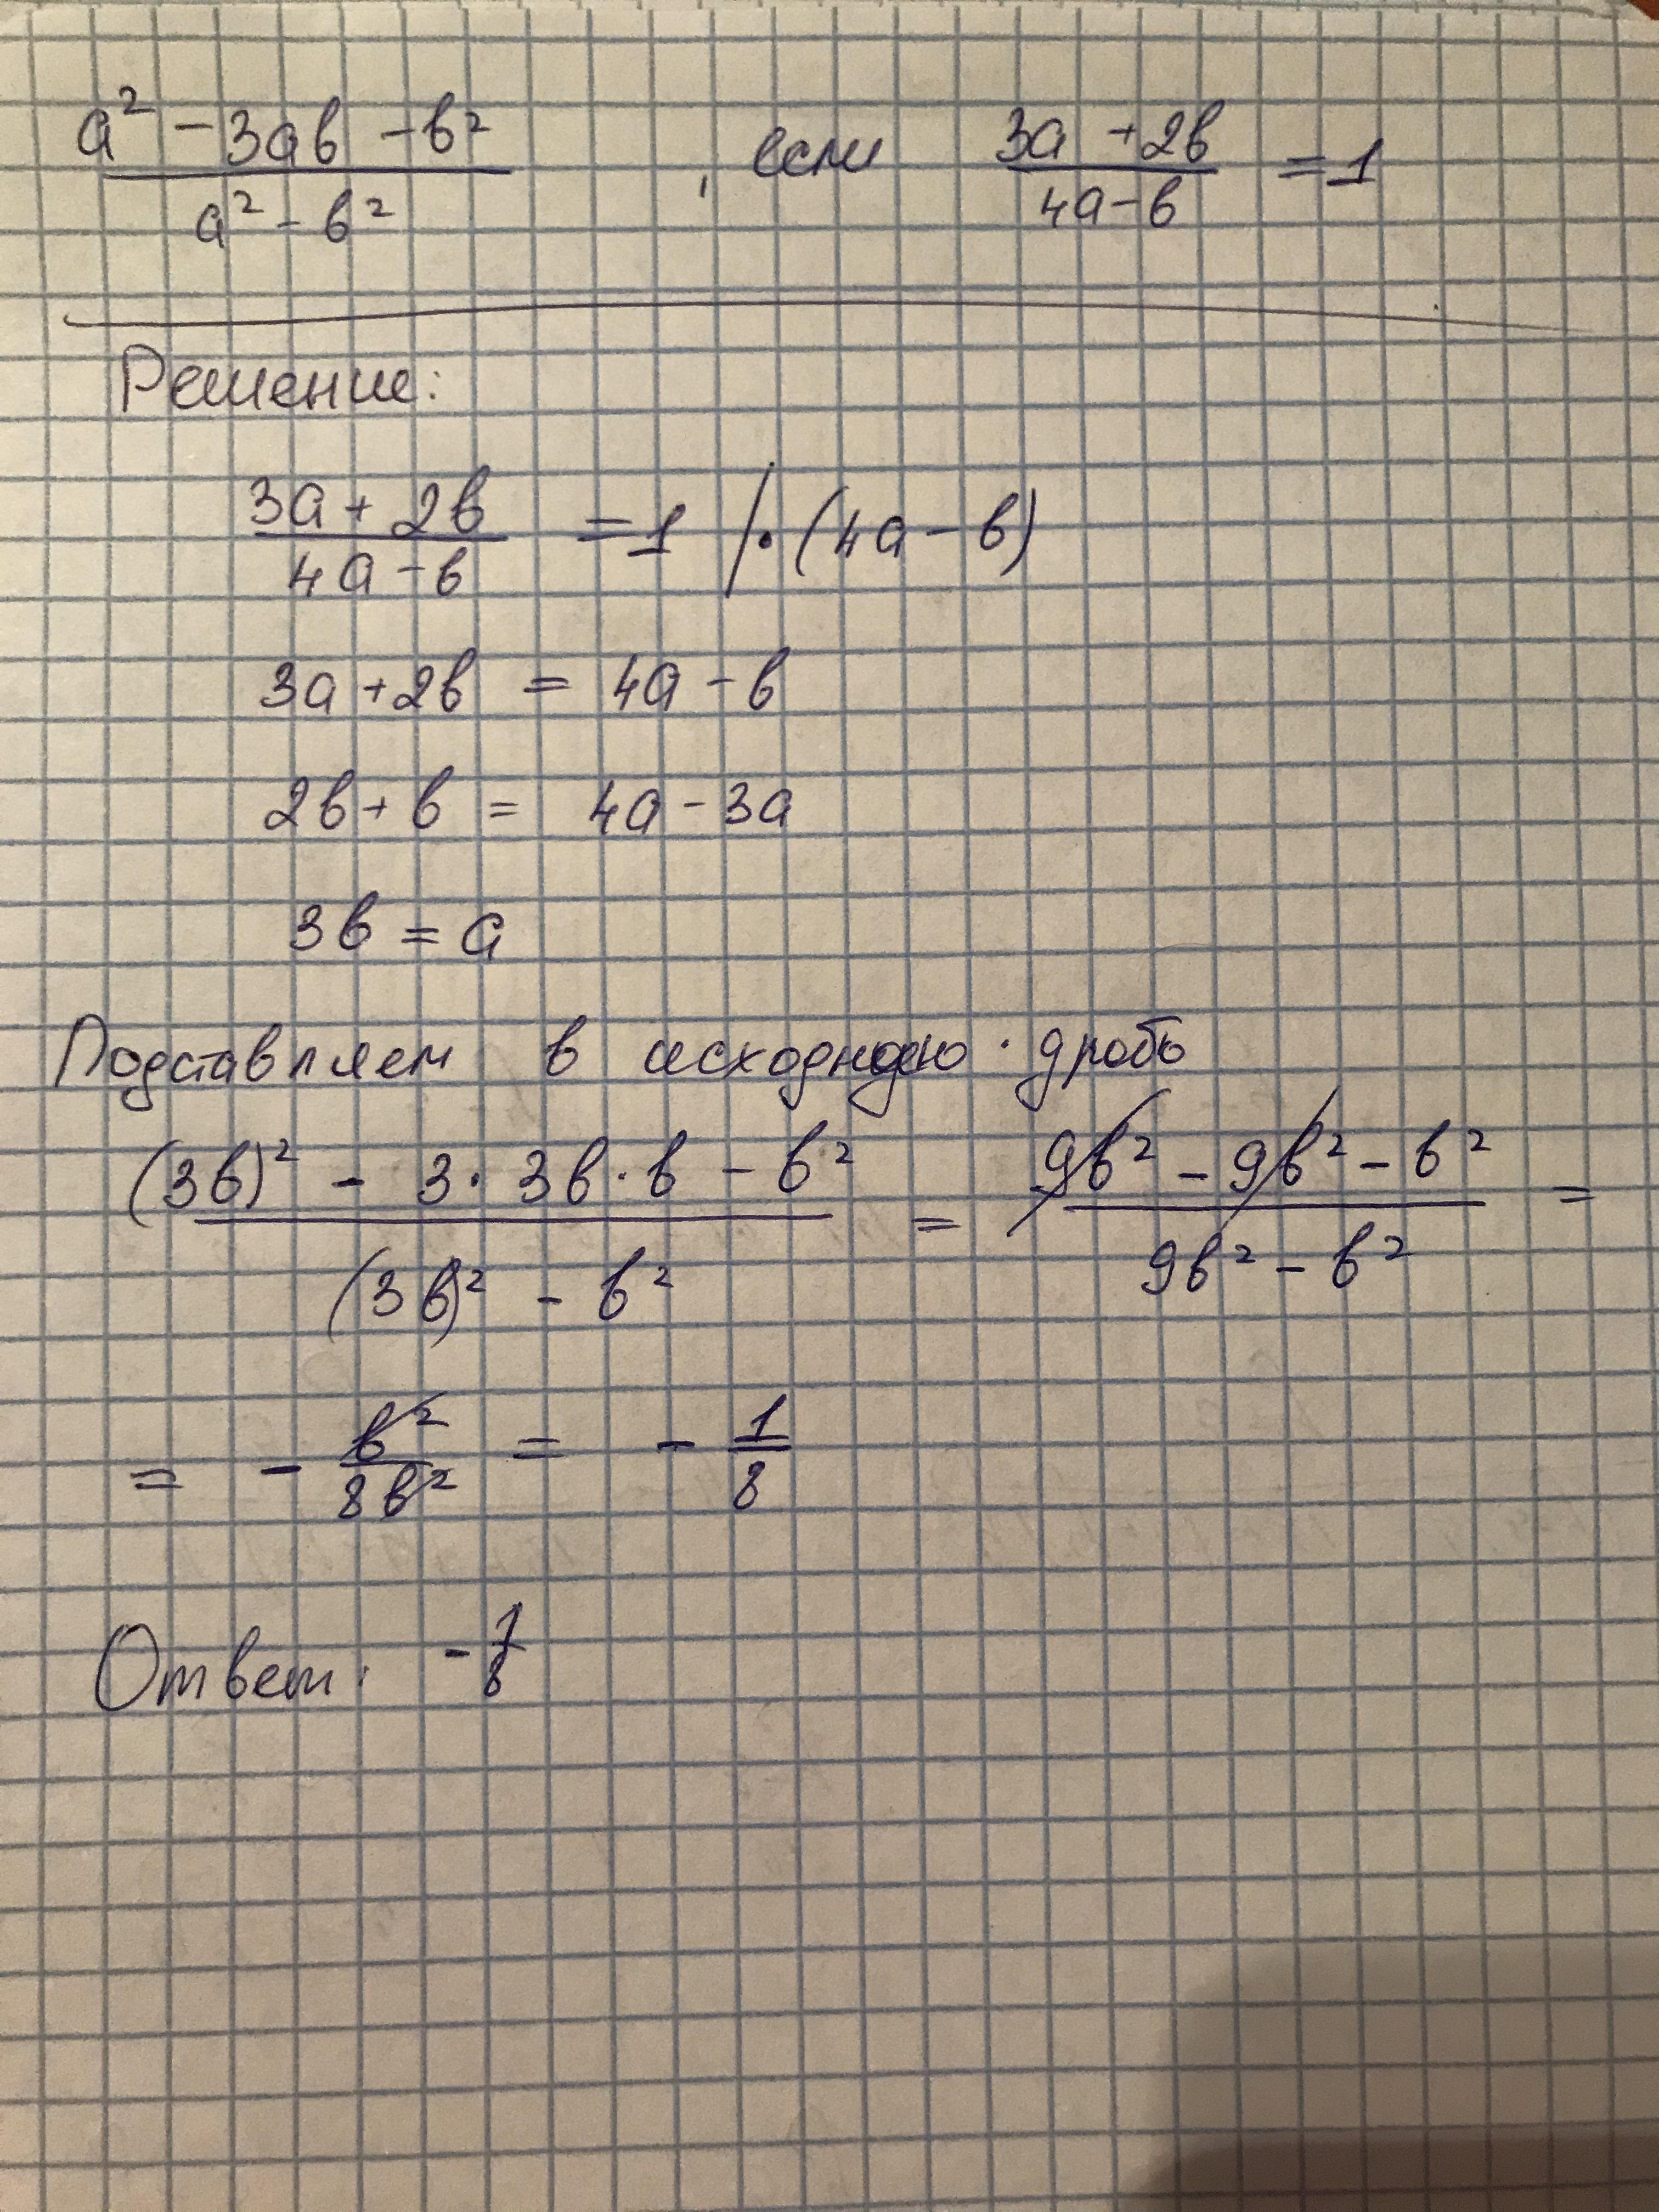 a² - 3ab - b² / a² - b² , если 3a + 2b / 4a - b = 1
Решение:
3a + 2b / 4a - b = 1 | · (4a - b)
3a + 2b = 4a - b
2b + b = 4a - 3a
3b = a
Подставляем в исходную дробь
(3b)² - 3 · 3b · b - b² / (3b)² - b² = 9b² - 9b² - b² / 9b² - b² =
= - b² / 8b² = - 1/8
Ответ: - 1/8